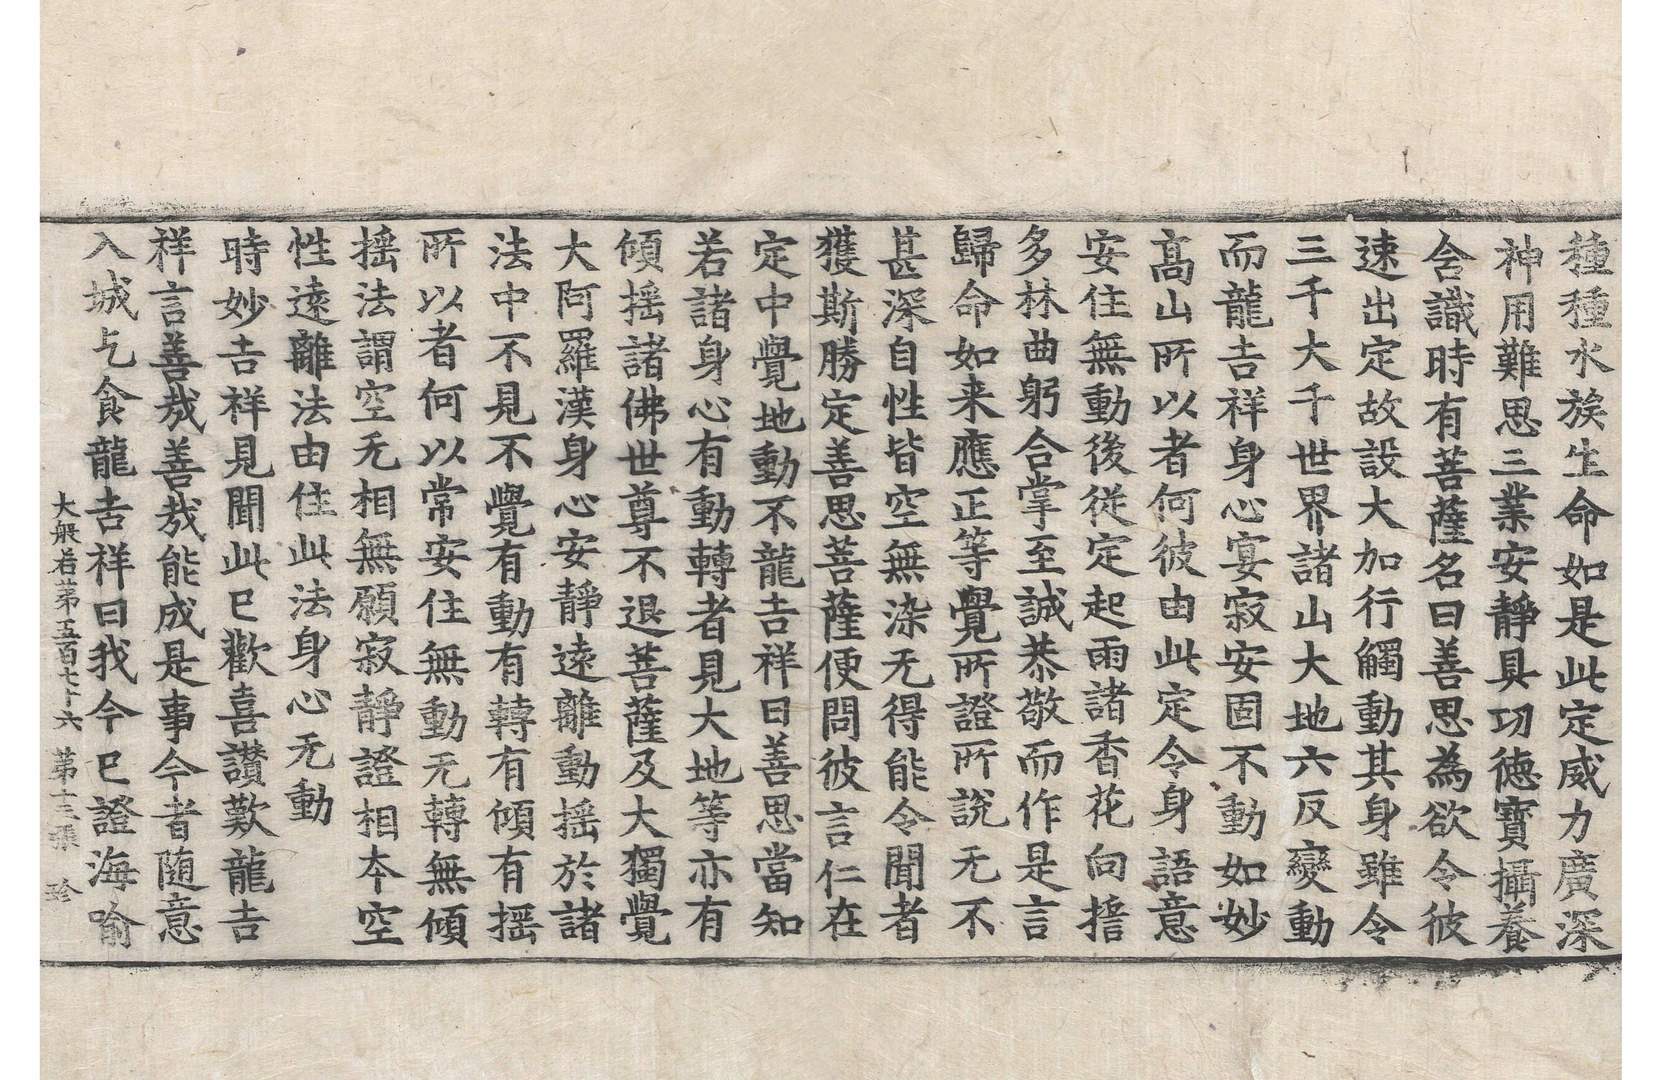 種種水族生命如是此定威力廣深
神用難思三業安靜具功德寶攝養
含識時有菩薩名曰善思為欲令彼
速出定故設大加行觸動其身雖令
三千大千世界諸山大地六反變動
而龍吉祥身心宴寂安固不動如妙
髙山所以者何彼由此定令身語意
安住無動後從定起雨諸香花向揞
多林曲躬合掌至誠恭敬而作是言
歸命如来應正等覺所證所說无不
甚深自性皆空無染无得能令聞者
獲斯勝定善思菩薩便問彼言仁在
定中覺地動不龍吉祥曰善思當知
若諸身心有動轉者見大地等亦有
傾揺諸佛世尊不退菩薩及大獨覺
大阿羅漢身心安靜遠離動揺於諸
法中不見不覺有動有轉有傾有揺
所以者何以常安住無動无轉無傾
揺法謂空无相無願寂靜證相夲空
性遠離法由住此法身心无動
時妙吉祥見聞此已歡喜讃歎龍吉
祥言善㢤善㢤能成是事今者随意
入城乞食龍吉祥曰我今已證海喻
大般若第五百七十六 第十三張 珎